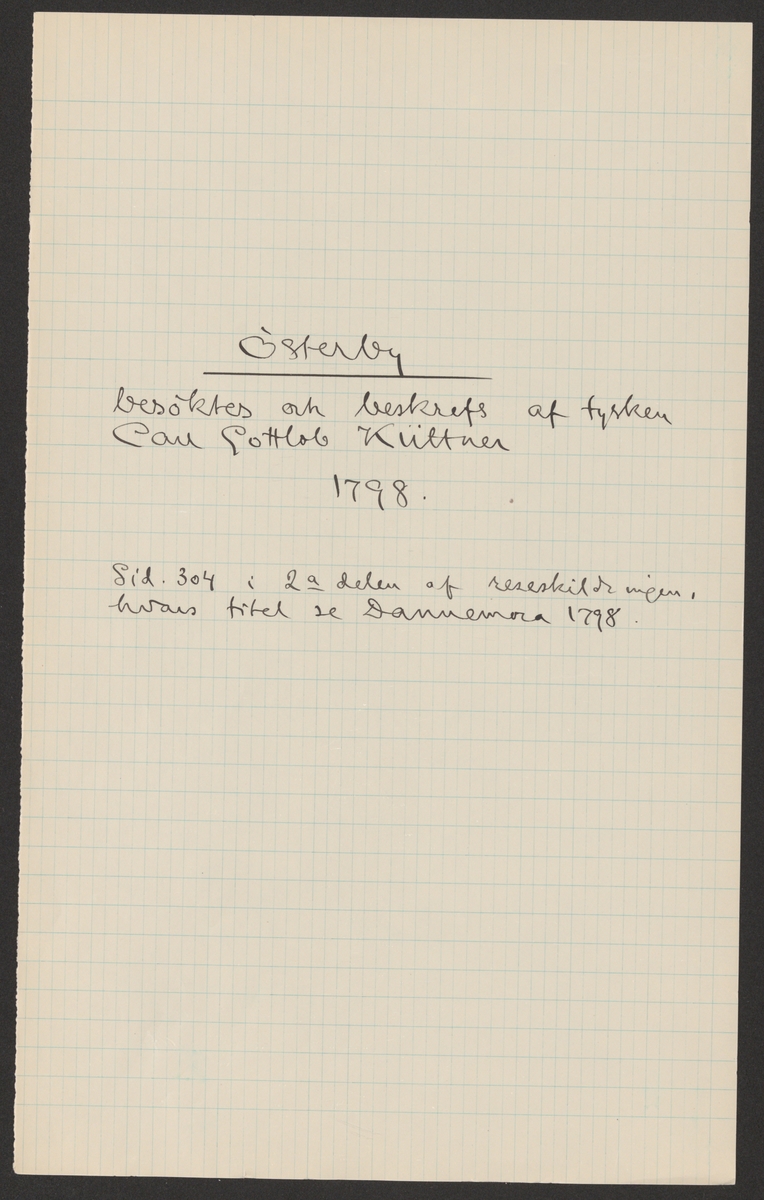 Österby
besöktes och beskrefs af tysken
Carl Gottlob Küttner
1798.
Sid. 304 i 2a delen af reseskildringen,
hvars titel se Dannemora 1798.